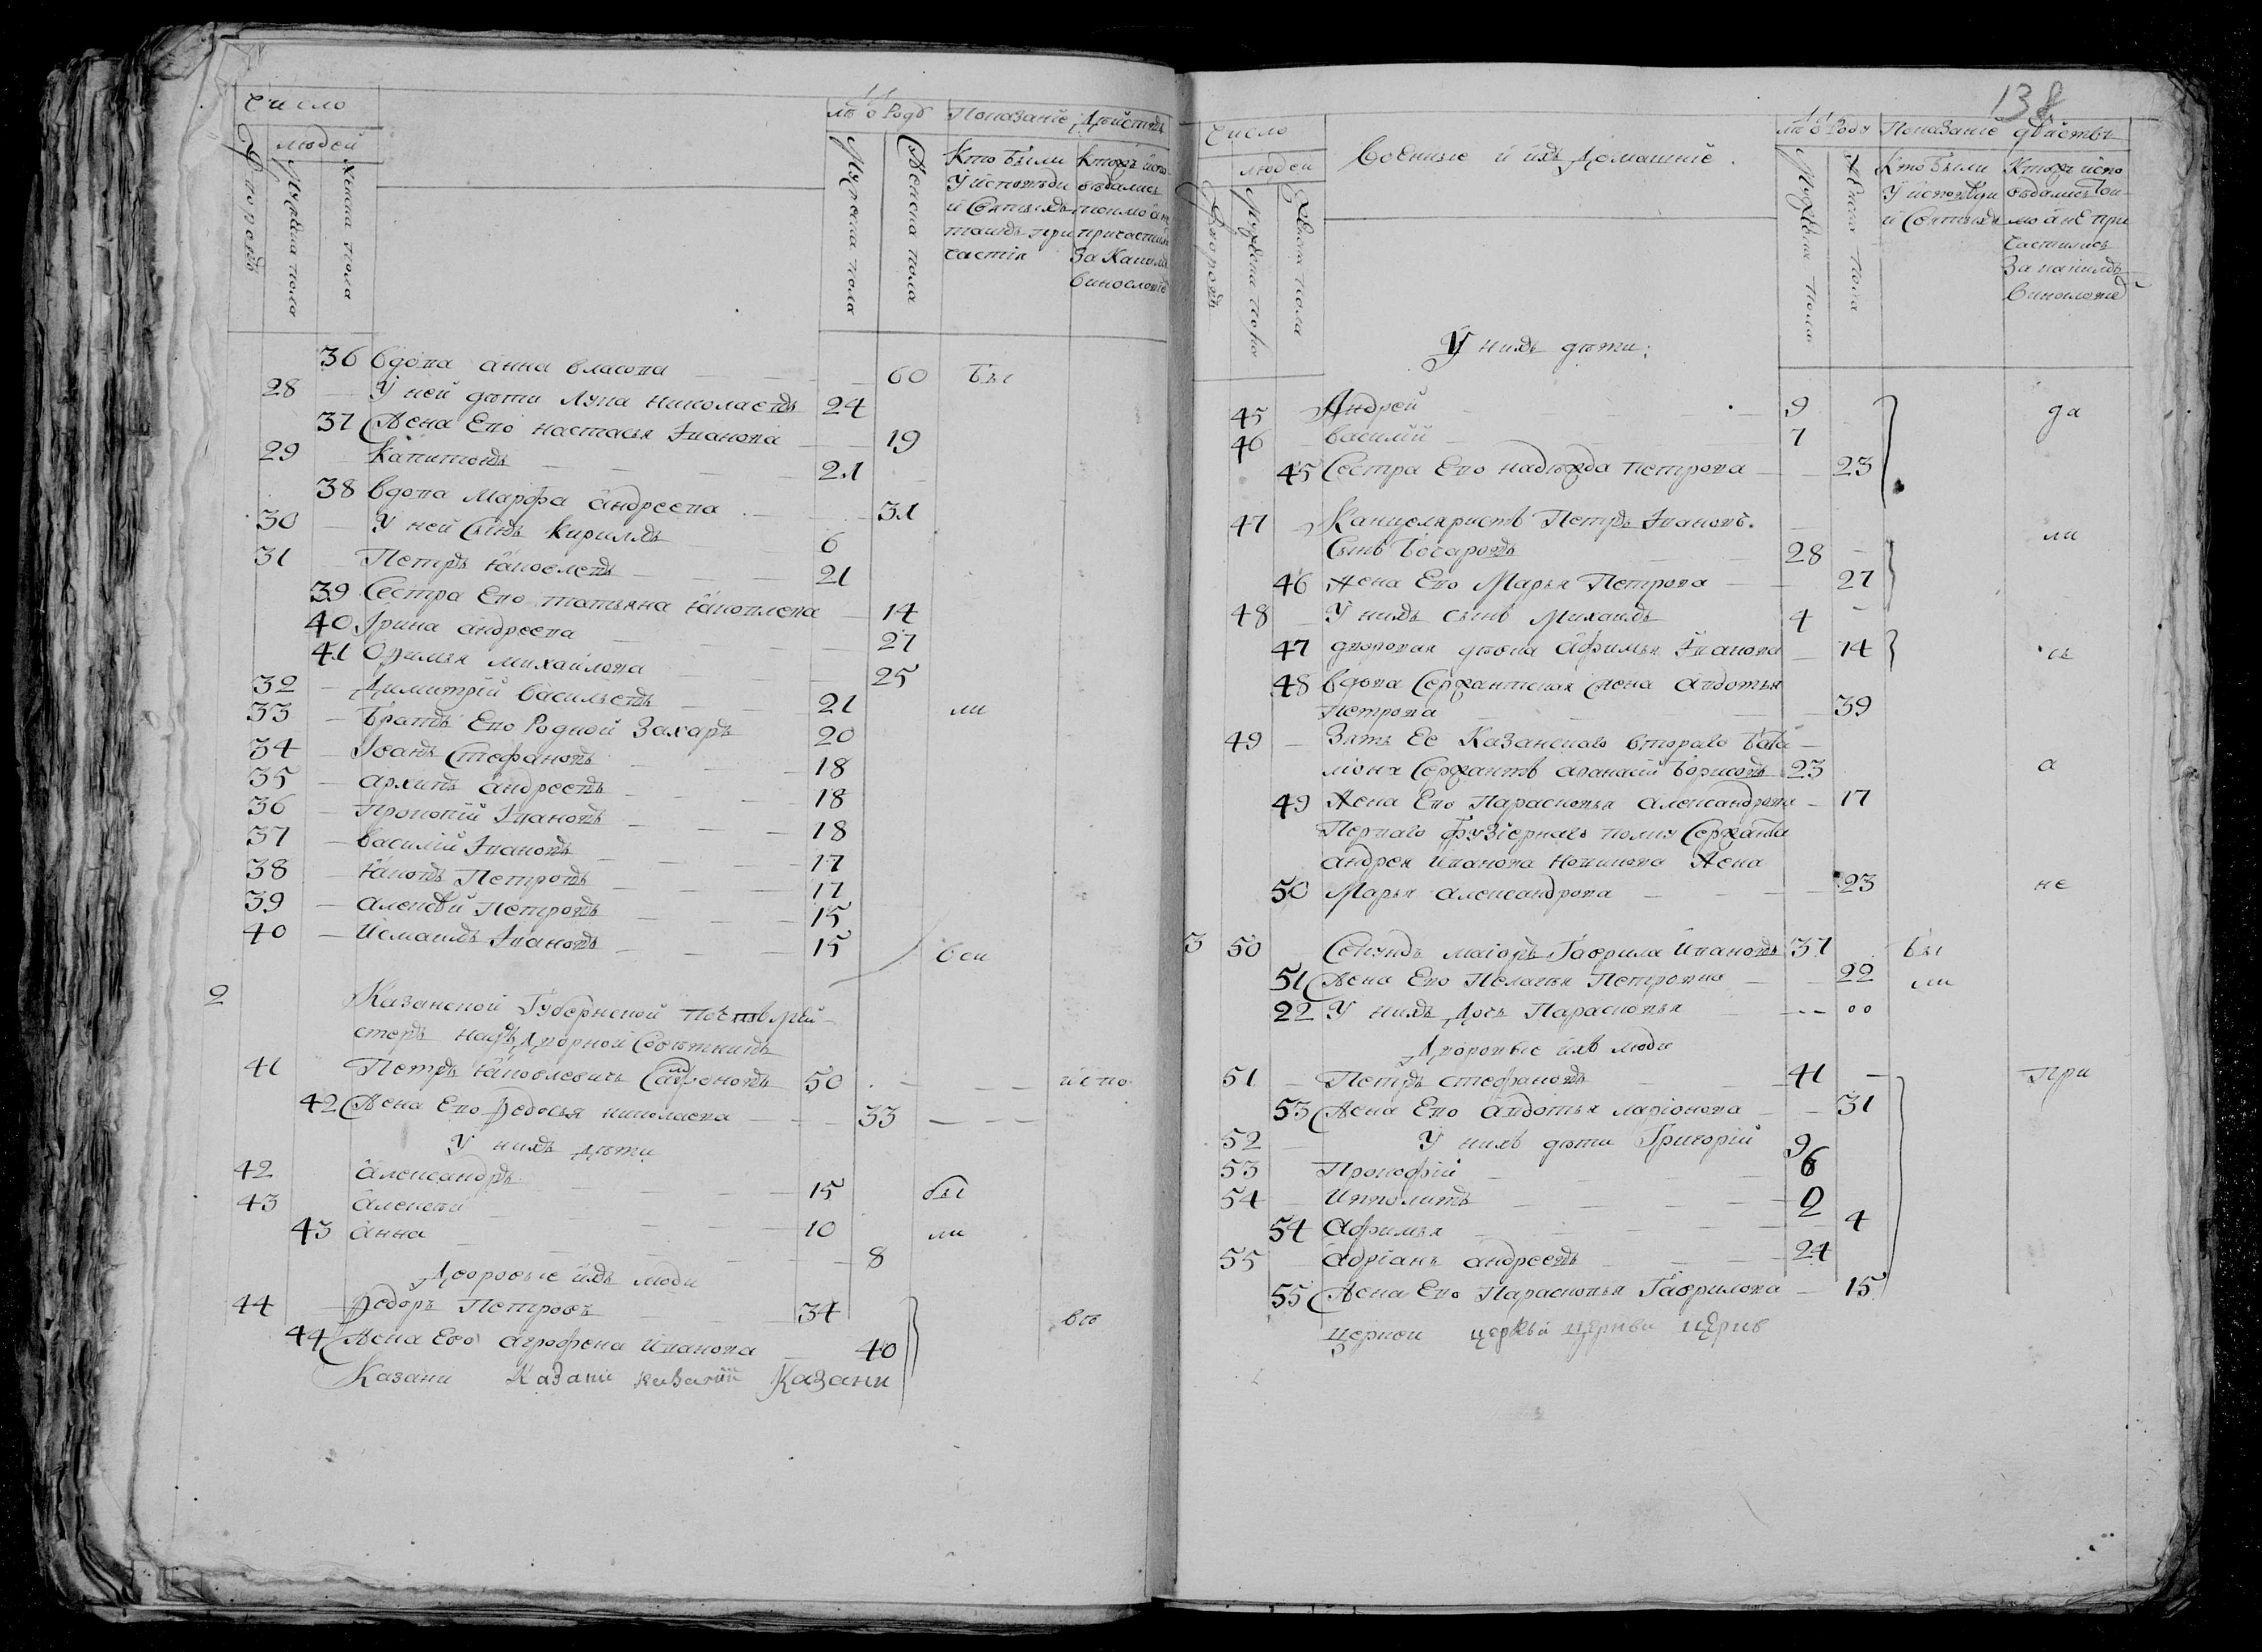 Число
людей
дворовъ
Мужеска пола
женска пола
лѣ о Родѣ
Показаніе дѣйствъ
Мужеска пола
Женска пола
Кто были
у исповѣди
и Святыхъ
таинъ при
частія
Кто жъ испо
вѣдались
токмо а не
причастили
за какимъ
винословіе
36 вдова анна власова 60 бы
28 У ней дѣти Лука николаевъ 24
37 Жена Ево настасья Іванова 19
29 Капитонъ 21
38 вдова Марфа андреева 31
30 У ней Сынъ Кириллъ 6
31 Петръ Яковлевъ 21
39 Сестра Ево татьяна Яковлева 14
40 Ірина андреева 27
41 Офимья михайлова 25
32 Димитрій васильевъ 21 ли
33 Братъ Ево Родной Захаръ 20
34 Іоанъ Стефановъ 18
35 архипъ андреевъ 18
36 Прокопій Ивановъ 18
37 василій Ивановъ 17
38 Яковъ Петровъ 17
39 алексѣй Петровъ 15
40 Исмаилъ Ивановъ 15 вси
2 Казанской Губернской
стеръ надъ Дворной Совѣтникъ
41 Петръ Яковлевичь 50 испо
42 Жена Ево Федосья николаева 33
У нихъ дѣти
42 Александръ 15 бы
43 алексѣй 10 ли
43 анна 8
Дворовые ихъ люди
44 Федоръ Петровъ 34 вѣ
44 Жена Ево агрофена Иванова 40
Казани Казани казаніи Казани
138
Число
людей
дворовъ
Мужеска полу
Женска пола
Военные и ихъ домашніе.
лѣ о Родѣ
Показаніе дѣйствъ
Мужеска пола
Женска пола
Кто были
у исповѣди
и Святыхъ
Кто жъ испо
вѣдались ток
мо а не при
частились
За какимъ
винословіе
У нихъ дѣти:
45 Андрей 9 да
46 василій 7
45 Сестра Ево надежда петрова 23
47 Канцеляристъ Петръ Ивановъ.
Сынъ Бочаровъ 28 ли
46 Жена Ево Марья Петрова 27
48 У нихъ сынъ Михаилъ 4
47 дворовая дѣвка Афимья Иванова 14 сь
48 вдова Сержантская жена авдотья
Петрова 39
49 Зять Ее Казанскаго втораго бата
ліона Сержантъ афанасій Борисовъ 23 а
49 Жена Ево Парасковья александрова 17
Перваго фузіернаго полку Сержанта
андрея Иванова жена
50 Марья александрова 23 не
3 50 Секундъ маіоръ Гаврила Ивановъ 37 бы
51 Жена Ево Пелагья Петровна 22 ли
22 У нихъ дочь Парасковья
Дворовые ихъ люди
51 Петръ стефановъ 41 при
53 Жена Ево авдотья ларіонова 31
52 У нихъ дѣти Григорій 9
53 Прокофій 6
54 Ипполитъ 2
54 Афимья 4
55 адріанъ андреевъ 24
55 Жена Ево Парасковья Гаврилова 15
церкви церкви церкви церкв